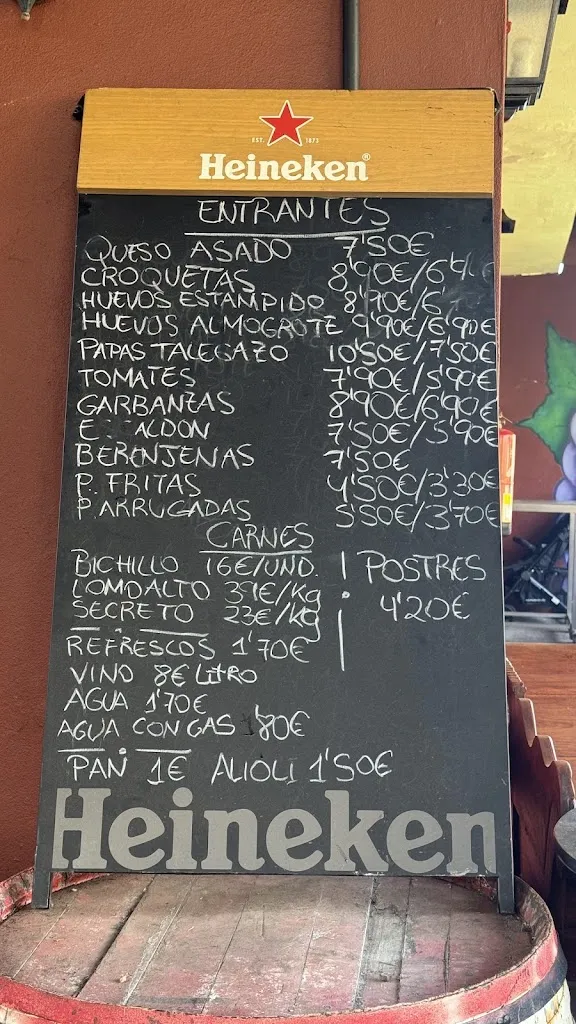 EST. 1873
Heineken®
ENTRANTES
QUESO ASADO 7'50€
CROQUETAS 8'90€/6'90€
HUEVOS ESTAMPIDO 8'90€/6'
HUEVOS ALMOGROTE 9'90€/6'90€
PAPAS TALEGAZO 10'50€/7'50€
TOMATES 7'90€/5'90€
GARBANZAS 8'90€/6'90€
7'50€/5'90€
BERENJENAS 7'50€
P. FRITAS 4'50€/3'30€
P. ARRUGADAS 5'50€/3'70€
CARNES
BICHILLO 16€/UND.
LOMO ALTO 39€/Kg
SECRETO 23€/Kg
POSTRES
4'20€
REFRESCOS 1'70€
VINO 8€ LITRO
AGUA 1'70€
AGUA CON GAS 1'80€
PAN 1€ ALIOLI 1'50€
Heineken